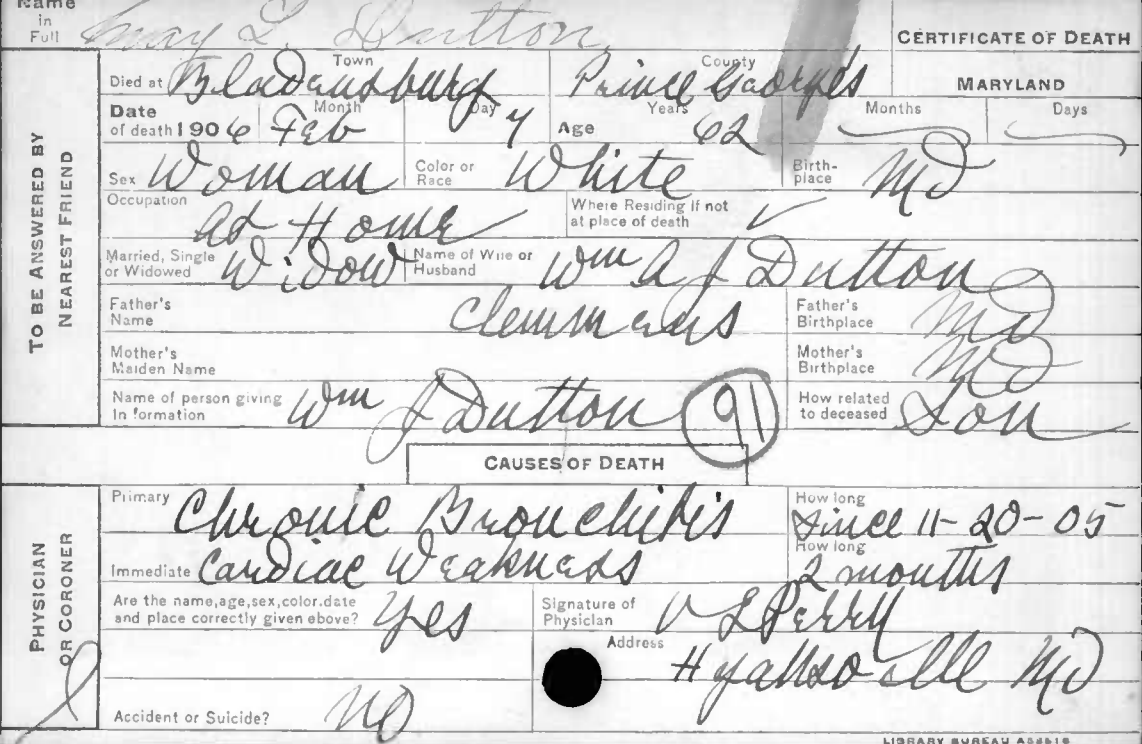 Name in Full May L. Dutton
CERTIFICATE OF DEATH
TO BE ANSWERED BY NEAREST FRIEND
Died at Bladensburg Town Prince Georges County MARYLAND
Date of death 1906 Feb Month Day 7 Age 62 Years Months Days
Sex Woman Color or Race White Birth-place Md
Occupation at Home Where Residing if not at place of death ✓
Married, Single or Widowed Widow Name of Wife or Husband Wm A J Dutton
Father's Name Clemmens Father's Birthplace Md
Mother's Maiden Name Mother's Birthplace Md
Name of person giving Information Wm J Dutton 91 How related to deceased Son
CAUSES OF DEATH
PHYSICIAN OR CORONER
Primary Chronic Bronchitis How long Since 11-20-05
Immediate Cardiac Weakness How long 2 months
Are the name, age, sex, color. date and place correctly given above? Yes Signature of Physician Perry
Address Hyattsville Md
Accident or Suicide? No
LIBRARY BUREAU